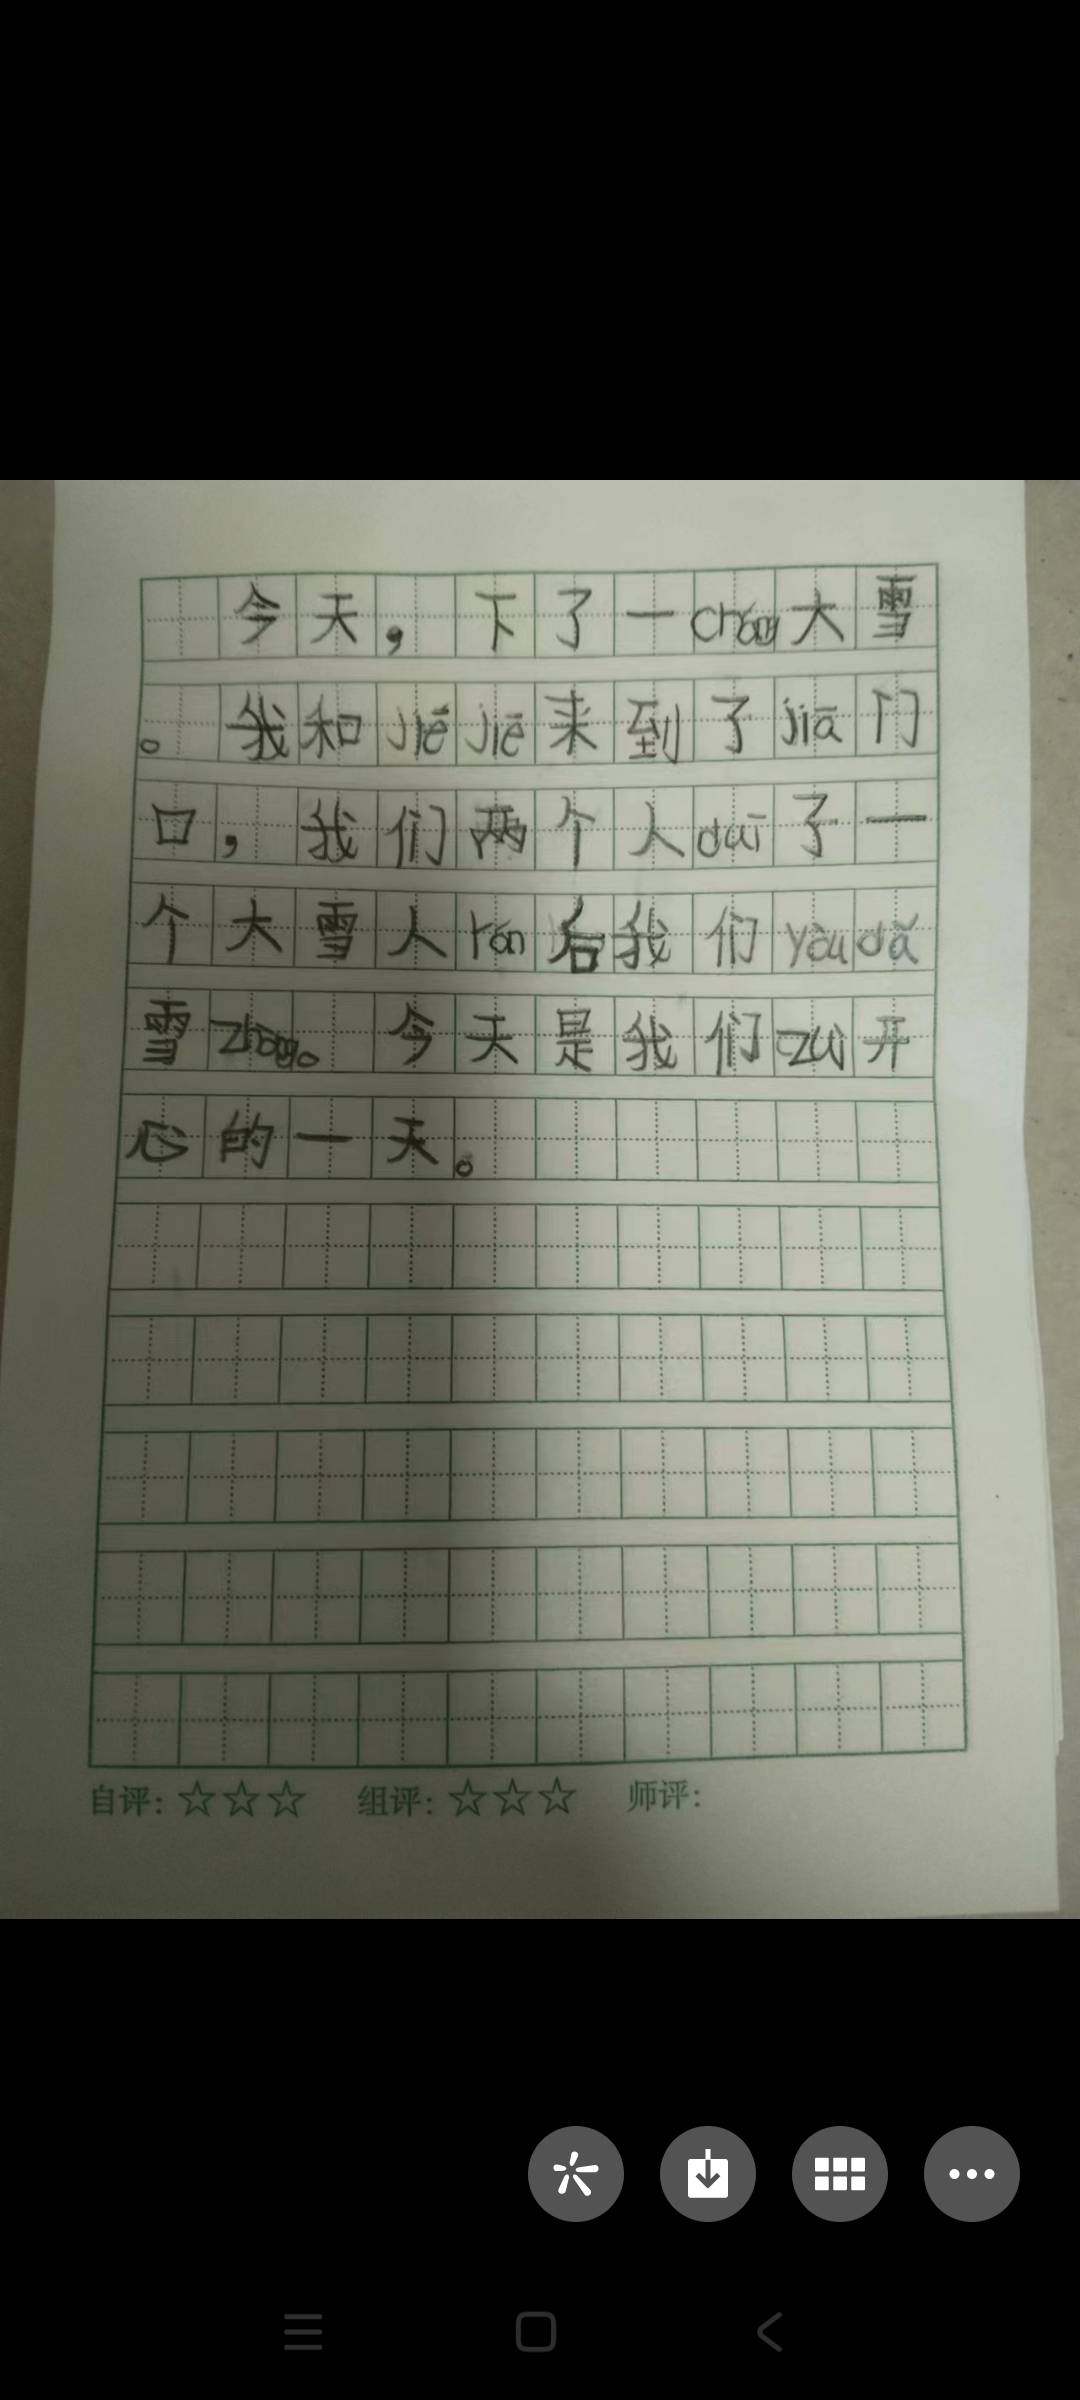 今天，下了一cháng大雪
。我和jiějiē来到了jiā门
口，我们两个人duī了一
个大雪人rán后我们yòudǎ
雪zhàng。今天是我们zuì开
心的一天。
自评：☆☆☆ 组评：☆☆☆ 师评：